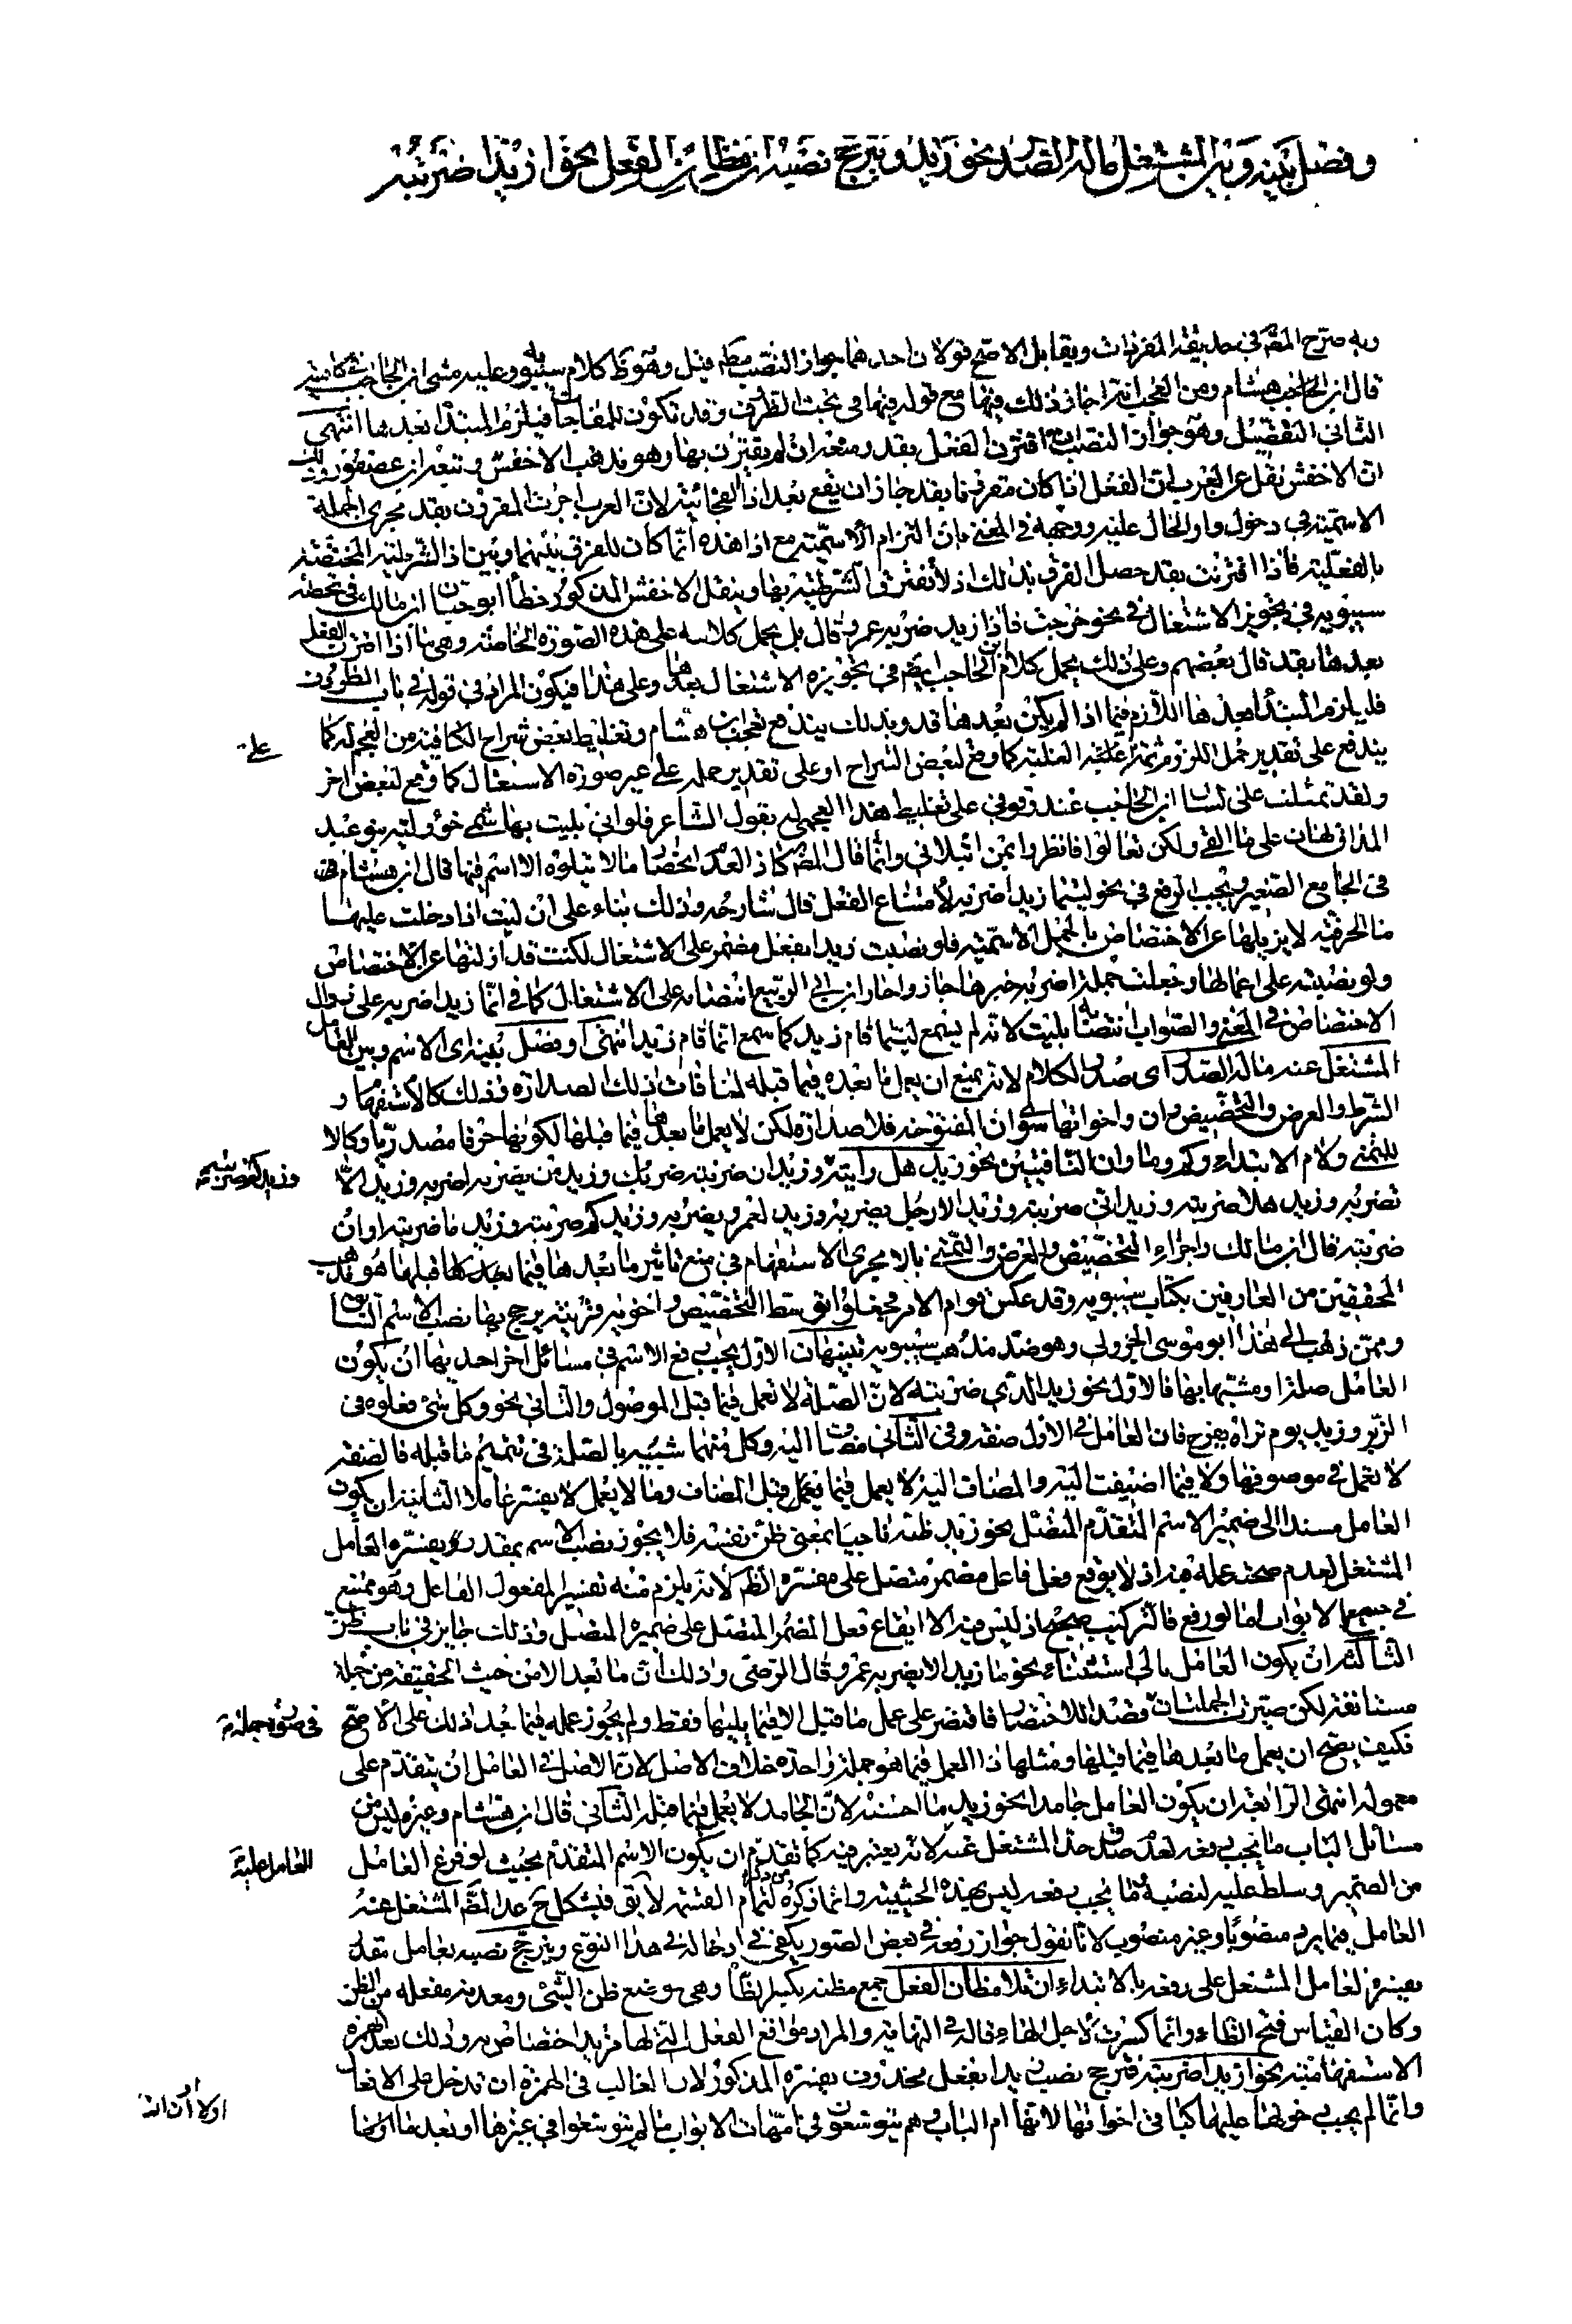 وفصل بينه وبين المشتغل ماله الصدر نحو زيد ويترجح نصبه ان مظان الفعل نحو ازيدا ضربته
وبه صرح المص في حديقة المفردات ويقابل الاصح قولان احدهما جواز النصب مطه قيل وهو ظ كلام سيبويه وعليه مشى ابن الحاجب في كافيته
قال ابن هشام ومن العجب انه اجاز ذلك فيها مع قوله فيها في بحث الظروف وقد تكون للمفاجأة فيلزم المبتدأ بعدها انتهى
الثاني التفصيل وهو جواز النصب ان اقترن الفعل بقد ومنعه ان لم يقترن بها وهو مذهب الاخفش وتبعه ابن عصفور وذلك
ان الاخفش نقل عن العرب ان الفعل اذا كان مقرونا بقد جاز ان يقع بعد اذا الفجائية لان العرب اجرت المقرون بقد مجرى الجملة
الاسمية في دخول واو الحال عليه ووجهه في المغني بان التزام الاسمية مع اذا هذه انما كان للفرق بينهما وبين اذا الشرطية المختصة
بالفعلية فاذا اقترنت بقد حصل الفرق بذلك اذ لا تقترن الشرطية بها وبنقل الاخفش المذكور خطأ ابو حيان ابن مالك في تخطئة
سيبويه في تجويز الاشتغال في نحو خرجت فاذا زيد ضربه عمرو قال بل يحمل كلامه على هذه الصورة الخاصة وهي ما اذا اقترن الفعل
بعدها بقد قال بعضهم وعلى ذلك يحمل كلام ابن الحاجب ايضا في تجويزه الاشتغال بعدها وعلى هذا فيكون المراد في قوله في باب الظروف
فيلزم المبتدأ بعدها اللازم فيما اذا لم يكن بعدها قد وبذلك يندفع تعجب ابن هشام وتغليط بعض شراح الكافية من العجم له كما
يندفع على تقدير حمل اللزوم على الغلبة كما وقع لبعض الشراح او على تقدير حمله على غير صورة الاشتغال كما وقع لبعض اخر
علے
ولقد تمثلت على لسان ابن الحاجب عند وقوفي على تغليط هذا العجمي له بقول الشاعر فلو اني بليت بهاشمي خؤولته بنو عبد
المدان لهان على ما القى ولكن تعالوا فانظروا بمن ابتلاني وانما قال المص كاذا لعدم انحصار ما لا يتلوه الا اسم فيها قال ابن هشام
في الجامع الصغير ويجب الرفع في نحو ليتما زيد اضربه لامتناع الفعل قال شارحه وذلك بناء على ان ليت اذا دخلت عليها
ما الحرفية لا يزيلها عن الاختصاص بالجمل الاسمية فلو نصبت زيدا بفعل مضمر على الاشتغال لكنت قد ازلتها عن الاختصاص
ولو نصبته على اعمالها وجعلت جملة اضربه خبرها جاز واجاز ابن ابي الربيع انتصابه على الاشتغال كما في انما زيدا اضربه على زوال
الاختصاص في المغني والصواب انتصابه بليت لانه لم يسمع ليتما قام زيد كما سمع انما قام زيد انتهى او فصل بينه اي الاسم وبين العامل
المشتغل عنه ماله الصدر اي صدر الكلام لانه يمنع ان يعمل ما بعده فيما قبله لمنافاة ذلك الصدارة وذلك كالاستفهام و
الشرط والعرض والتحضيض وان واخواتها سوى ان المفتوحة فلا صدارة لكن لا يعمل ما بعدها فيما قبلها لكونها حرفا مصدريا وكالا
للتمني ولام الابتداء وكم وما وان النافيتين نحو زيد هل رأيته وزيد ان ضربته ضربك وزيد من يضربه اضربه وزيد الا
تضربه وزيد هلا ضربته وزيد اني ضربته وزيد الا رجل يضربه وزيد لعمرو يضربه وزيد كم ضربته وزيد ما ضربته او ان
ضربته قال ابن مالك واجراء التحضيض والعرض والتمني بالا مجرى الاستفهام في منع تأثير ما بعدها فيما قبلها هو مذهب
المحققين من العارفين بكتاب سيبويه وقد عكس قوم الامر فجعلوا توسط التحضيض واخويه قرينة يرجح بها نصب الاسم السابق
وممن ذهب الى هذا ابو موسى الجزولي وهو ضد مذهب سيبويه تنبيهان الاول يجب رفع الاسم في مسائل اخر احديها ان يكون
العامل صلة او مشبها بها فالاول نحو زيد الذي ضربته لان الصلة لا تعمل فيما قبل الموصول والثاني نحو وكل شئ فعلوه في
الزبر وزيد يوم تراه يفرح فان العامل في الاول صفة وفي الثاني مضاف اليه وكل منهما شبيه بالصلة في تتميم ما قبله فالصفة
لا تعمل في موصوفها ولا فيما اضيفت اليه والمضاف اليه لا يعمل فيما قبل المضاف وما لا يعمل لا يفسر عاملا الثانية ان يكون
العامل مسندا الى ضمير الاسم المتقدم المتصل نحو زيد ظنه ناجيا بمعنى ظن نفسه فلا يجوز نصب الاسم بمقدر يفسره العامل
المشتغل لعدم صحة عمله فيه اذ لا يوقع فعل فاعل مضمر متصل على مفسره الظاهر لانه يلزم منه تفسير المفعول الفاعل وهو ممتنع
في جميع الابواب اما لو رفع فالتركيب صحيح اذ ليس فيه الا ايقاع فعل المضمر المتصل على ضميره المتصل وذلك جايز في باب ظن
الثالثة ان يكون العامل تالي استثناء نحو ما زيد الا يضربه عمرو قال الرضي وذلك ان ما بعد الا من حيث الحقيقة من جملة
مستأنفة لكن صيرت الجملتان قصدا للاختصار فاقتصر على عمل ما قبل الا فيما يليها فقط ولم يجوز عمله فيما بعد ذلك على الاصح
في صورة جملة
فكيف يصح ان يعمل ما بعدها فيما قبلها ومثلها اذا العمل فيما هو جملة واحدة خلاف الاصل لان الاصل في العامل ان يتقدم على
معموله انتهى الرابعة ان يكون العامل جامدا نحو زيد ما احسنه لان الجامد لا يعمل فيما قبله الثاني قال ابن هشام وغيره ليس من
مسائل الباب ما يجب رفعه لعدم صدق حد المشتغل عنه لانه يعتبر فيه كما تقدم ان يكون الاسم المتقدم بحيث لو فرغ العامل
العامل عليه
من الضمير وسلط عليه لنصبه وما يجب رفعه ليس بهذه الحيثية وانما ذكره لتمام القسمة لا يق فيشكل ح عد المص المشتغل عنه
العامل فيما يرد منصوبا وغير منصوب لانا نقول جواز رفعه في بعض الصور يكفي في ادخاله في هذا النوع ويترجح نصبه بعامل مقدر
يفسره العامل المشتغل على رفعه بالابتداء ان تلا مظان الفعل جمع مظنه بكسر الظاء وهي موضع ظن الشئ ومعدنه مفعله من الظن
وكان القياس فتح الظاء وانما كسرت لاجل الهاء قاله في النهاية والمراد مواقع الفعل التي لها مزيد اختصاص به وذلك بعد همزة
الاستفهام نحو ازيدا ضربته فترجح نصب زيدا بفعل محذوف يفسره المذكور لان الغالب في الهمزة ان تدخل على الافعال
وانما لم يجب دخولها عليها كما في اخواتها لانها ام الباب وهم يتوسعون في امهات الابواب ما لم يتوسعوا في غيرها او بعد ما او لا